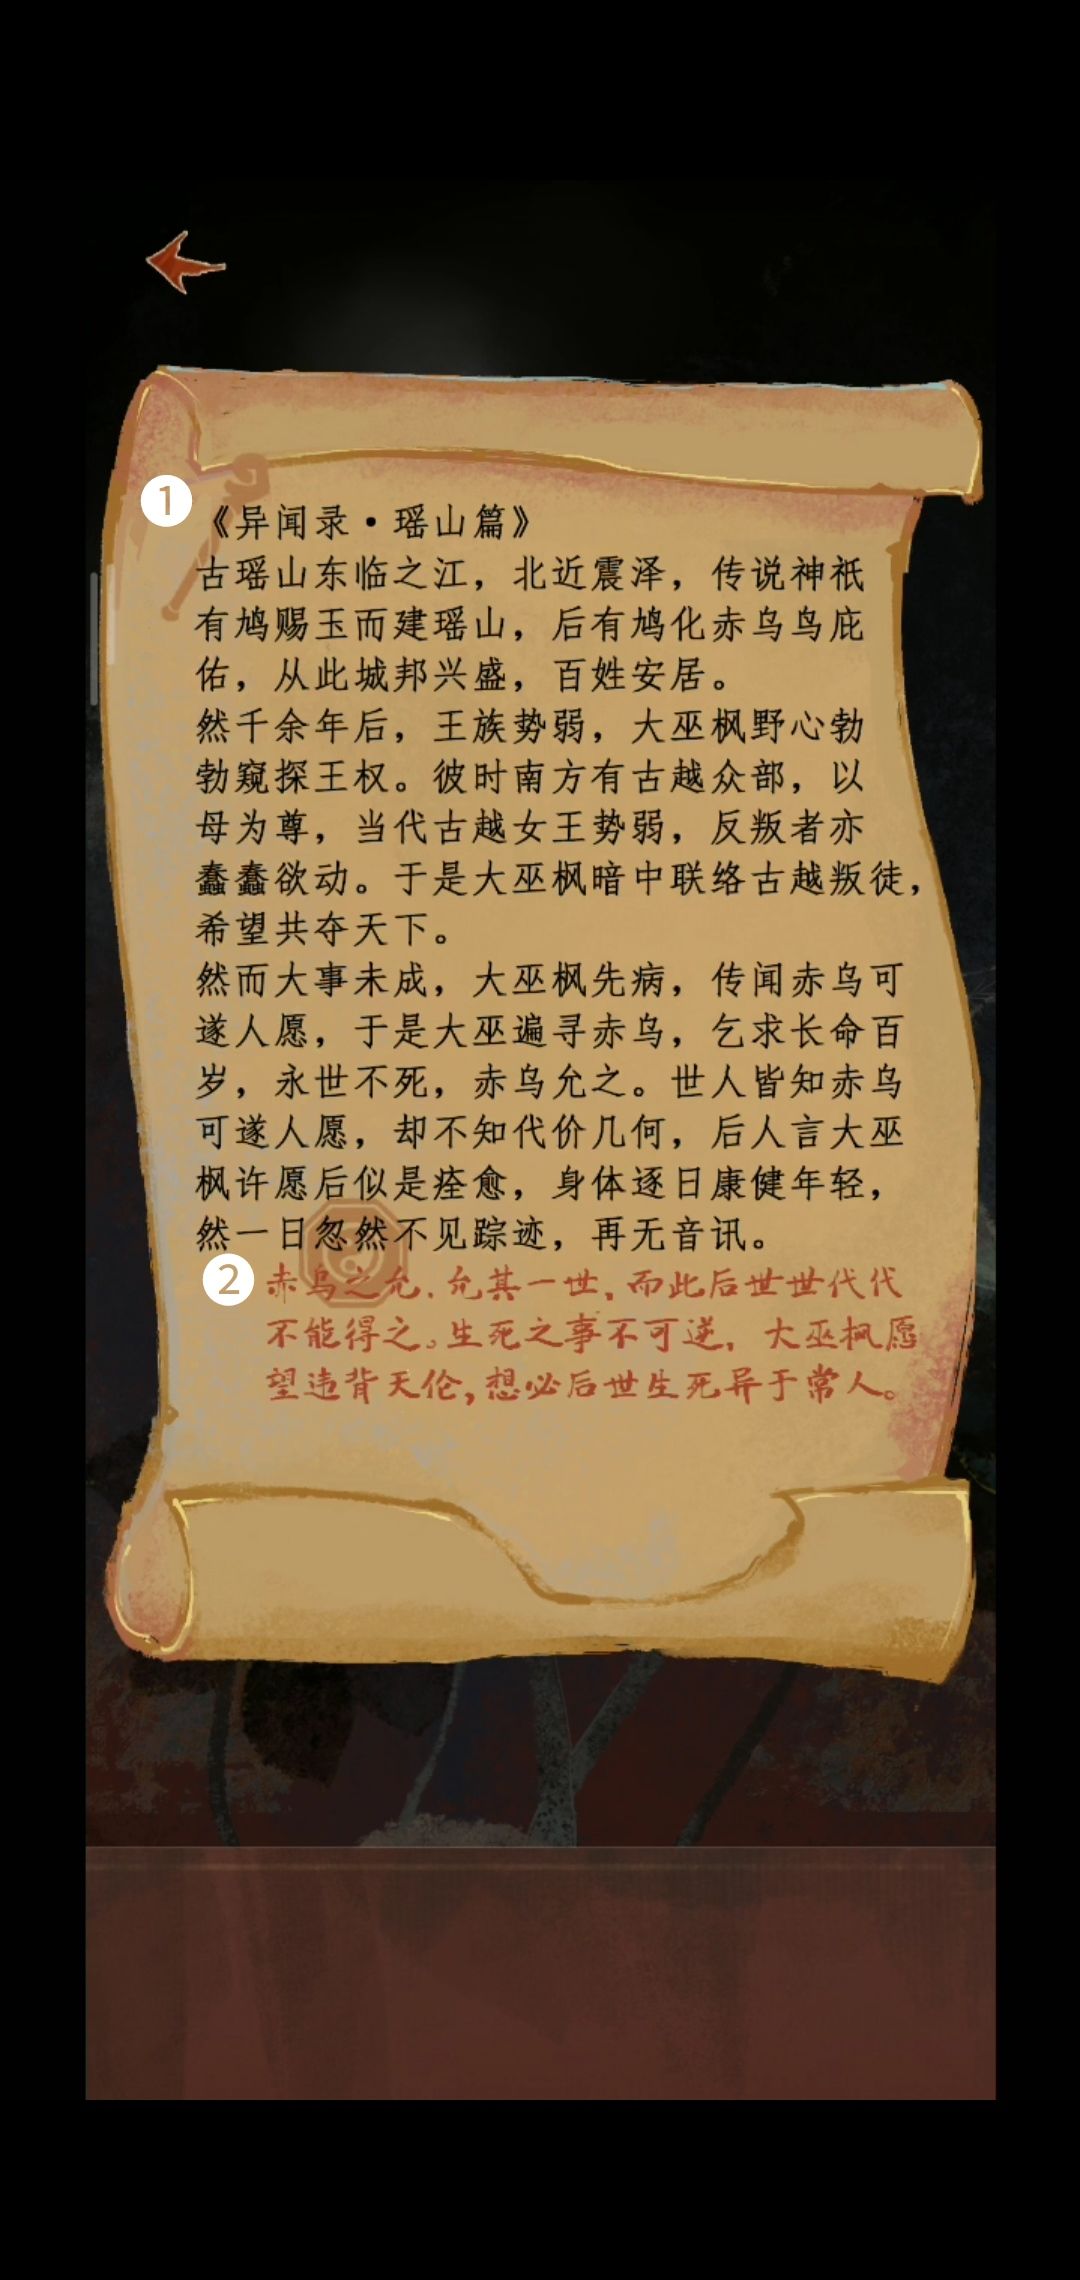 1
《异闻录·瑶山篇》
古瑶山东临之江，北近震泽，传说神祇
有鸠赐玉而建瑶山，后有鸠化赤乌鸟庇
佑，从此城邦兴盛，百姓安居。
然千余年后，王族势弱，大巫枫野心勃
勃窥探王权。彼时南方有古越众部，以
母为尊，当代古越女王势弱，反叛者亦
蠢蠢欲动。于是大巫枫暗中联络古越叛徒，
希望共夺天下。
然而大事未成，大巫枫先病，传闻赤乌可
遂人愿，于是大巫遍寻赤乌，乞求长命百
岁，永世不死，赤乌允之。世人皆知赤乌
可遂人愿，却不知代价几何，后人言大巫
枫许愿后似是痊愈，身体逐日康健年轻，
然一日忽然不见踪迹，再无音讯。
2
赤乌之允，允其一世，而此后世世代代
不能得之。生死之事不可逆，大巫枫愿
望违背天伦，想必后世生死异于常人。